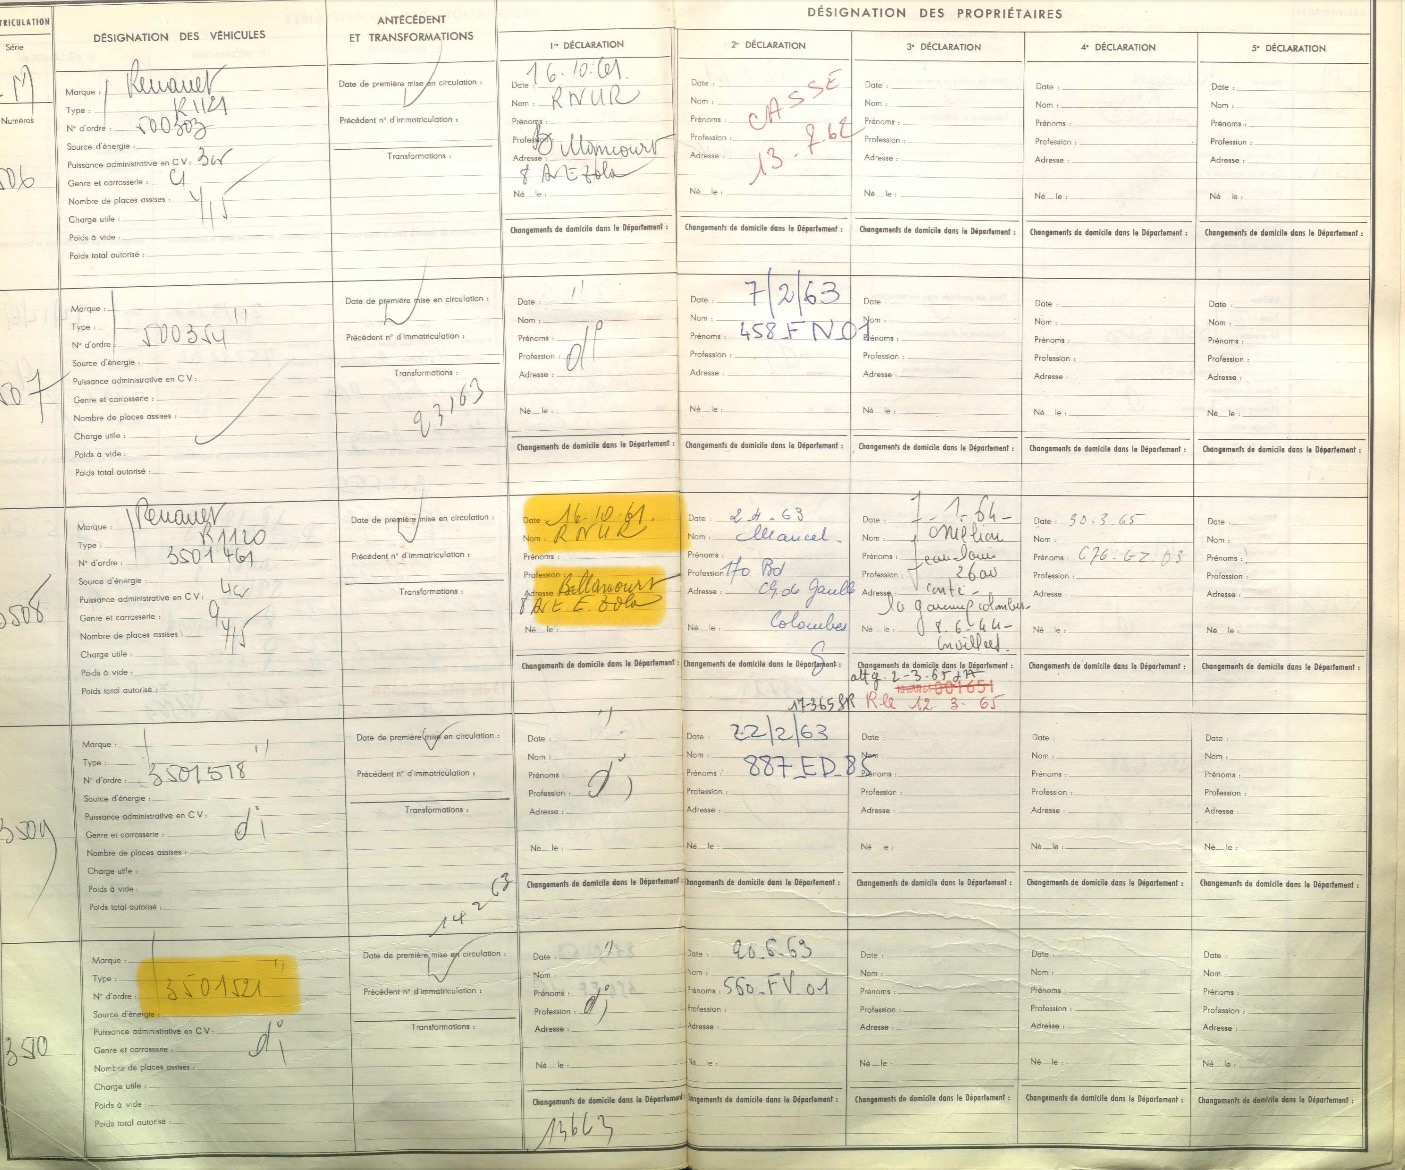 TRICULATION
Série
M
Numéros
DÉSIGNATION DES VÉHICULES
ANTÉCÉDENT
ET TRANSFORMATIONS
DÉSIGNATION DES PROPRIÉTAIRES
1re DÉCLARATION
2e DÉCLARATION
3e DÉCLARATION
4e DÉCLARATION
5e DÉCLARATION
506
Marque : Renault
Type : R1121
N° d'ordre : 500303
Source d'énergie :
Puissance administrative en CV : 3cv
Genre et carrosserie : CI
Nombre de places assises : 4/5
Charge utile :
Poids à vide :
Poids total autorisé :
Date de première mise en circulation :
Précédent n° d'immatriculation :
Transformations :
Date : 16.10.61.
Nom : RNUR
Prénoms :
Profession :
Adresse :
8 Av E Zola
Né le :
Changements de domicile dans le Département :
Date :
Nom :
Prénoms :
Profession :
Adresse :
CASSÉ
13.7.62
Né le :
Changements de domicile dans le Département :
Date :
Nom :
Prénoms :
Profession :
Adresse :
Né le :
Changements de domicile dans le Département :
Date :
Nom :
Prénoms :
Profession :
Adresse :
Né le :
Changements de domicile dans le Département :
Date :
Nom :
Prénoms :
Profession :
Adresse :
Né le :
Changements de domicile dans le Département :
507
Marque :
Type : "
N° d'ordre : 500354
Source d'énergie :
Puissance administrative en CV :
Genre et carrosserie :
Nombre de places assises :
Charge utile :
Poids à vide :
Poids total autorisé :
Date de première mise en circulation :
Précédent n° d'immatriculation :
Transformations :
23163
Date : "
Nom :
Prénoms : d°
Profession :
Adresse :
Né le :
Changements de domicile dans le Département :
Date : 7/2/63
Nom :
Prénoms : 458_FN_01
Profession :
Adresse :
Né le :
Changements de domicile dans le Département :
Date :
Nom :
Prénoms :
Profession :
Adresse :
Né le :
Changements de domicile dans le Département :
Date :
Nom :
Prénoms :
Profession :
Adresse :
Né le :
Changements de domicile dans le Département :
Date :
Nom :
Prénoms :
Profession :
Adresse :
Né le :
Changements de domicile dans le Département :
3508
Marque : Renault
Type : R1120
N° d'ordre : 3501461
Source d'énergie :
Puissance administrative en CV : 4cv
Genre et carrosserie :
Nombre de places assises : 4/5
Charge utile :
Poids à vide :
Poids total autorisé :
Date de première mise en circulation :
Précédent n° d'immatriculation :
Transformations :
Date : 16.10.61.
Nom : RNUR
Prénoms :
Profession :
Adresse : Billancourt
8 Av E. Zola
Né le :
Changements de domicile dans le Département :
Date : 2.4.63
Nom :
Prénoms :
Profession : 170 Bd
Adresse : Ch. de Gaulle
Né le : Colombes
Changements de domicile dans le Département :
17365 SR
Date : 7-1-64-
Nom :
Prénoms : Jean Louis
Profession : 26 av
Adresse :
la garenne colombes
Né le : 8.6.44
Changements de domicile dans le Département :
2-3-65
001651
R le 12 3. 65
Date : 30.3.65
Nom :
Prénoms : 676.GZ.03
Profession :
Adresse :
Né le :
Changements de domicile dans le Département :
Date :
Nom :
Prénoms :
Profession :
Adresse :
Né le :
Changements de domicile dans le Département :
3509
Marque :
Type : "
N° d'ordre : 3501518
Source d'énergie :
Puissance administrative en CV :
Genre et carrosserie : d°
Nombre de places assises :
Charge utile :
Poids à vide :
Poids total autorisé :
Date de première mise en circulation :
Précédent n° d'immatriculation :
Transformations :
14 2 63
Date : "
Nom :
Prénoms : d°
Profession :
Adresse :
Né le :
Changements de domicile dans le Département :
Date : 22/2/63
Nom :
Prénoms : 887_ED_85
Profession :
Adresse :
Né le :
Changements de domicile dans le Département :
Date :
Nom :
Prénoms :
Profession :
Adresse :
Né le :
Changements de domicile dans le Département :
Date :
Nom :
Prénoms :
Profession :
Adresse :
Né le :
Changements de domicile dans le Département :
Date :
Nom :
Prénoms :
Profession :
Adresse :
Né le :
Changements de domicile dans le Département :
3510
Marque :
Type : "
N° d'ordre : 3501521
Source d'énergie :
Puissance administrative en CV :
Genre et carrosserie : d°
Nombre de places assises :
Charge utile :
Poids à vide :
Poids total autorisé :
Date de première mise en circulation :
Précédent n° d'immatriculation :
Transformations :
Date : "
Nom :
Prénoms : d°
Profession :
Adresse :
Né le :
Changements de domicile dans le Département :
13663
Date : 20.6.63
Nom :
Prénoms : 560_FV_01
Profession :
Adresse :
Né le :
Changements de domicile dans le Département :
Date :
Nom :
Prénoms :
Profession :
Adresse :
Né le :
Changements de domicile dans le Département :
Date :
Nom :
Prénoms :
Profession :
Adresse :
Né le :
Changements de domicile dans le Département :
Date :
Nom :
Prénoms :
Profession :
Adresse :
Né le :
Changements de domicile dans le Département :